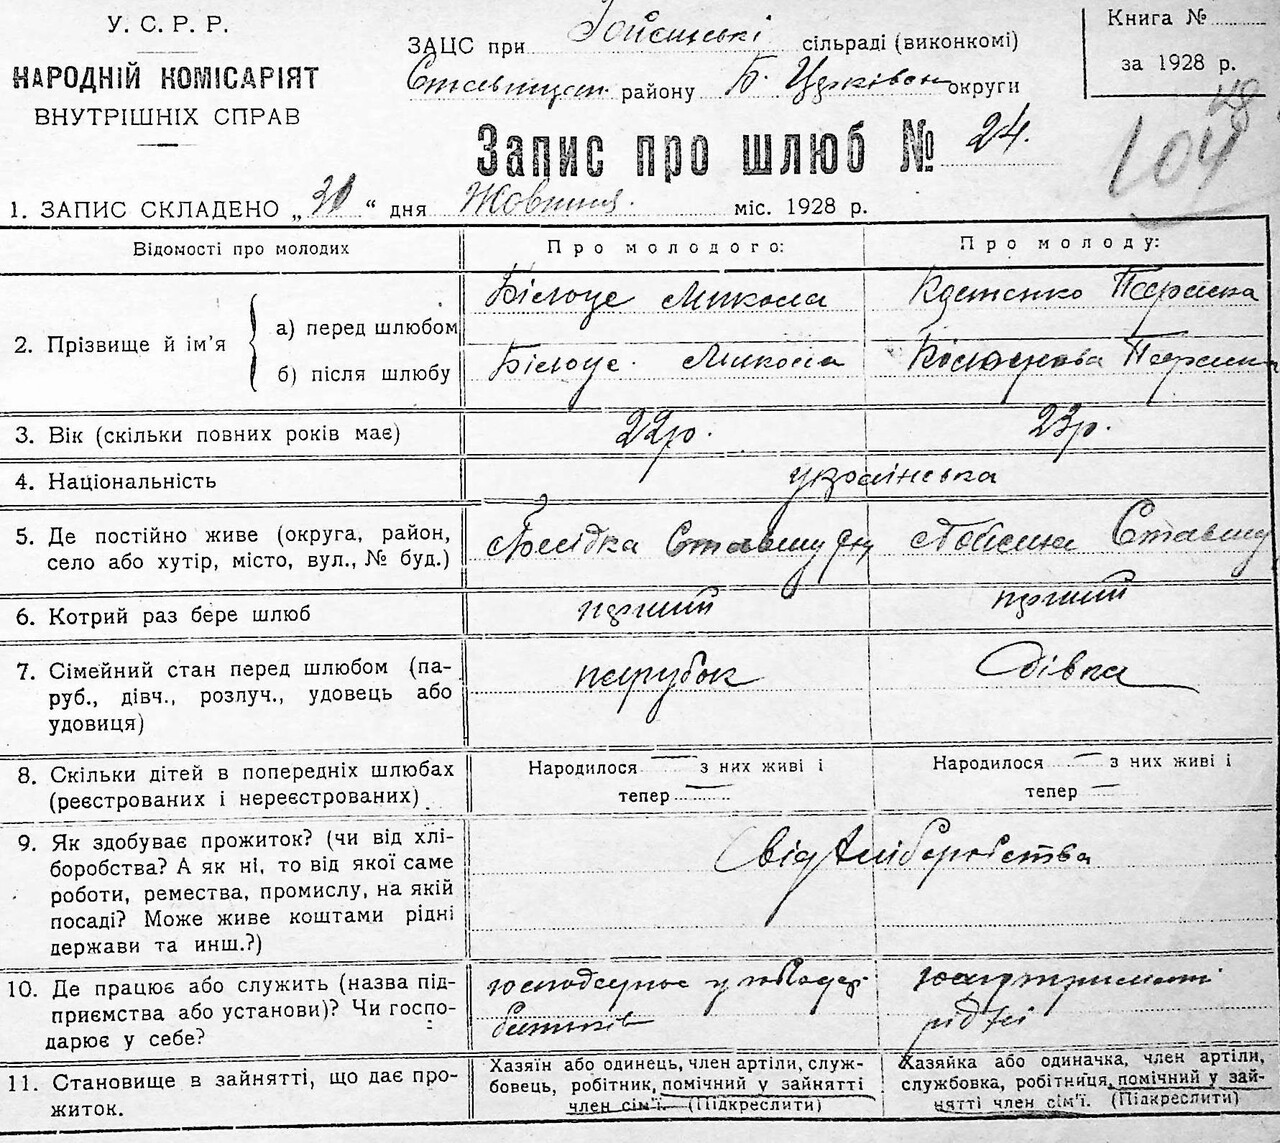 У. С. Р. Р.
НАРОДНІЙ КОМІСАРІЯТ
ВНУТРІШНІХ СПРАВ
ЗАЦС при сільраді (виконкомі)
району Б. Церківської округи
Книга №
за 1928 р.
104
Запис про шлюб № 24.
1. ЗАПИС СКЛАДЕНО „ “ дня Жовтня міс. 1928 р.
Відомості про молодих
Про молодого:
Про молоду:
2. Прізвище й ім'я
а) перед шлюбом
Білоус Микола
Костенко
б) після шлюбу
Білоус Микола
3. Вік (скільки повних років має)
22р.
23р.
4. Національність
українська
5. Де постійно живе (округа, район,
село або хутір, місто, вул., № буд.)
6. Котрий раз бере шлюб
перший
перший
7. Сімейний стан перед шлюбом (па-
руб., дівч., розлуч., удовець або
удовиця)
парубок
дівка
8. Скільки дітей в попередніх шлюбах
(реєстрованих і нереєстрованих)
Народилося — з них живі і
тепер
Народилося — з них живі і
тепер —
9. Як здобуває прожиток? (чи від хлі-
боробства? А як ні, то від якої саме
роботи, ремества, промислу, на якій
посаді? Може живе коштами рідні
держави та инш.?)
від хліборобства
10. Де працює або служить (назва під-
приємства або установи)? Чи госпо-
дарює у себе?
11. Становище в зайнятті, що дає про-
житок.
Хазяїн або одинець, член артілі, служ-
бовець, робітник, помічний у зайнятті
член сім'ї. (Підкреслити)
Хазяйка або одиначка, член артіли,
службовка, робітниця, помічний у зай-
нятті член сім'ї. (Підкреслити)